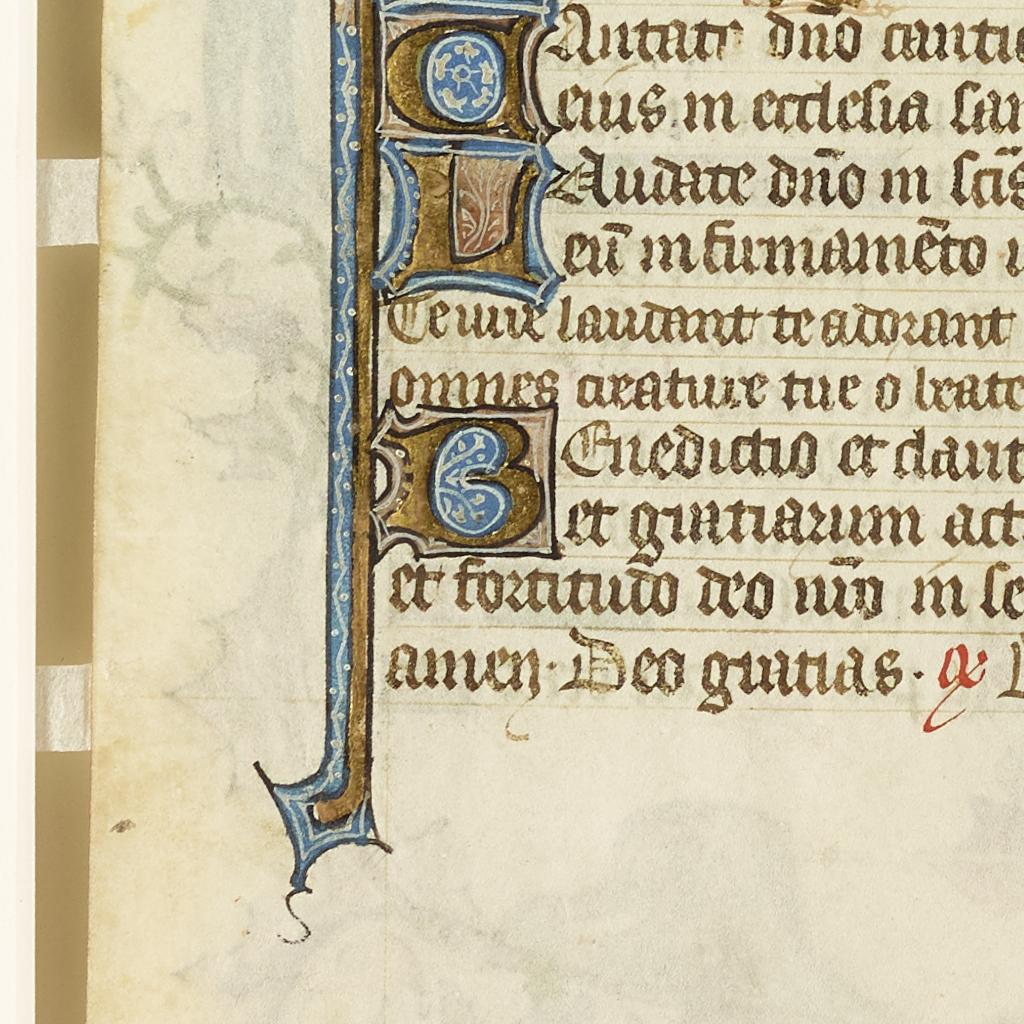 CAntate dn̄o cantic
eius in ecclesia san
LAudate dn̄o in sc̄is
eū in firmamēto u
Te iure laudant te adorant
omnes creature tue o beata
BEnedictio et clarit
et gratiarum act
et fortitudo deo nr̄o in se
amen. Deo gratias.